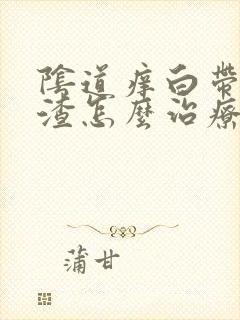 陰道痒白帶
渣怎麼治療
蒲甘